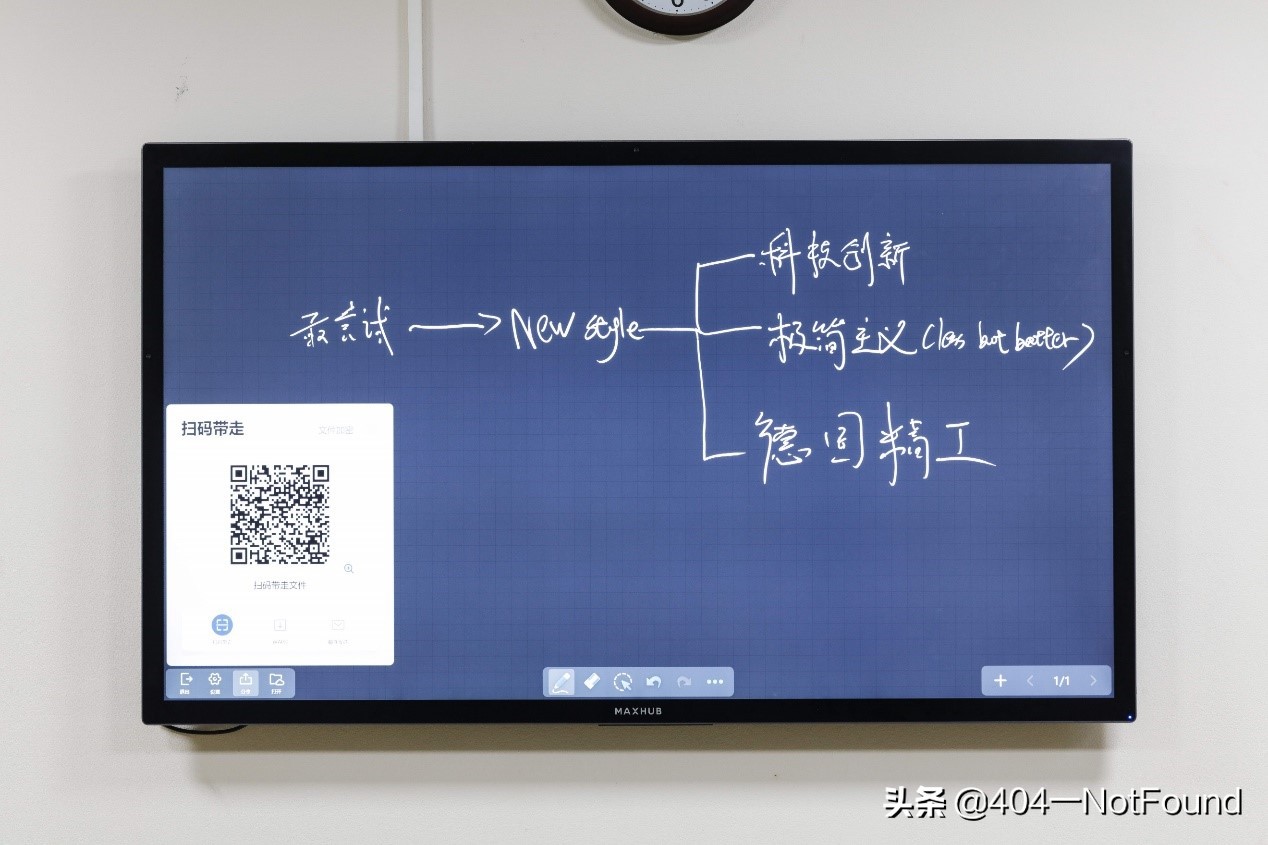 科技创新
录尝试 → New style
极简主义 (less but better)
德国精工
扫码带走
文件加密
扫码带走文件
退出 设置 分享 打开
1/1
MAXHUB
头条 @404一NotFound